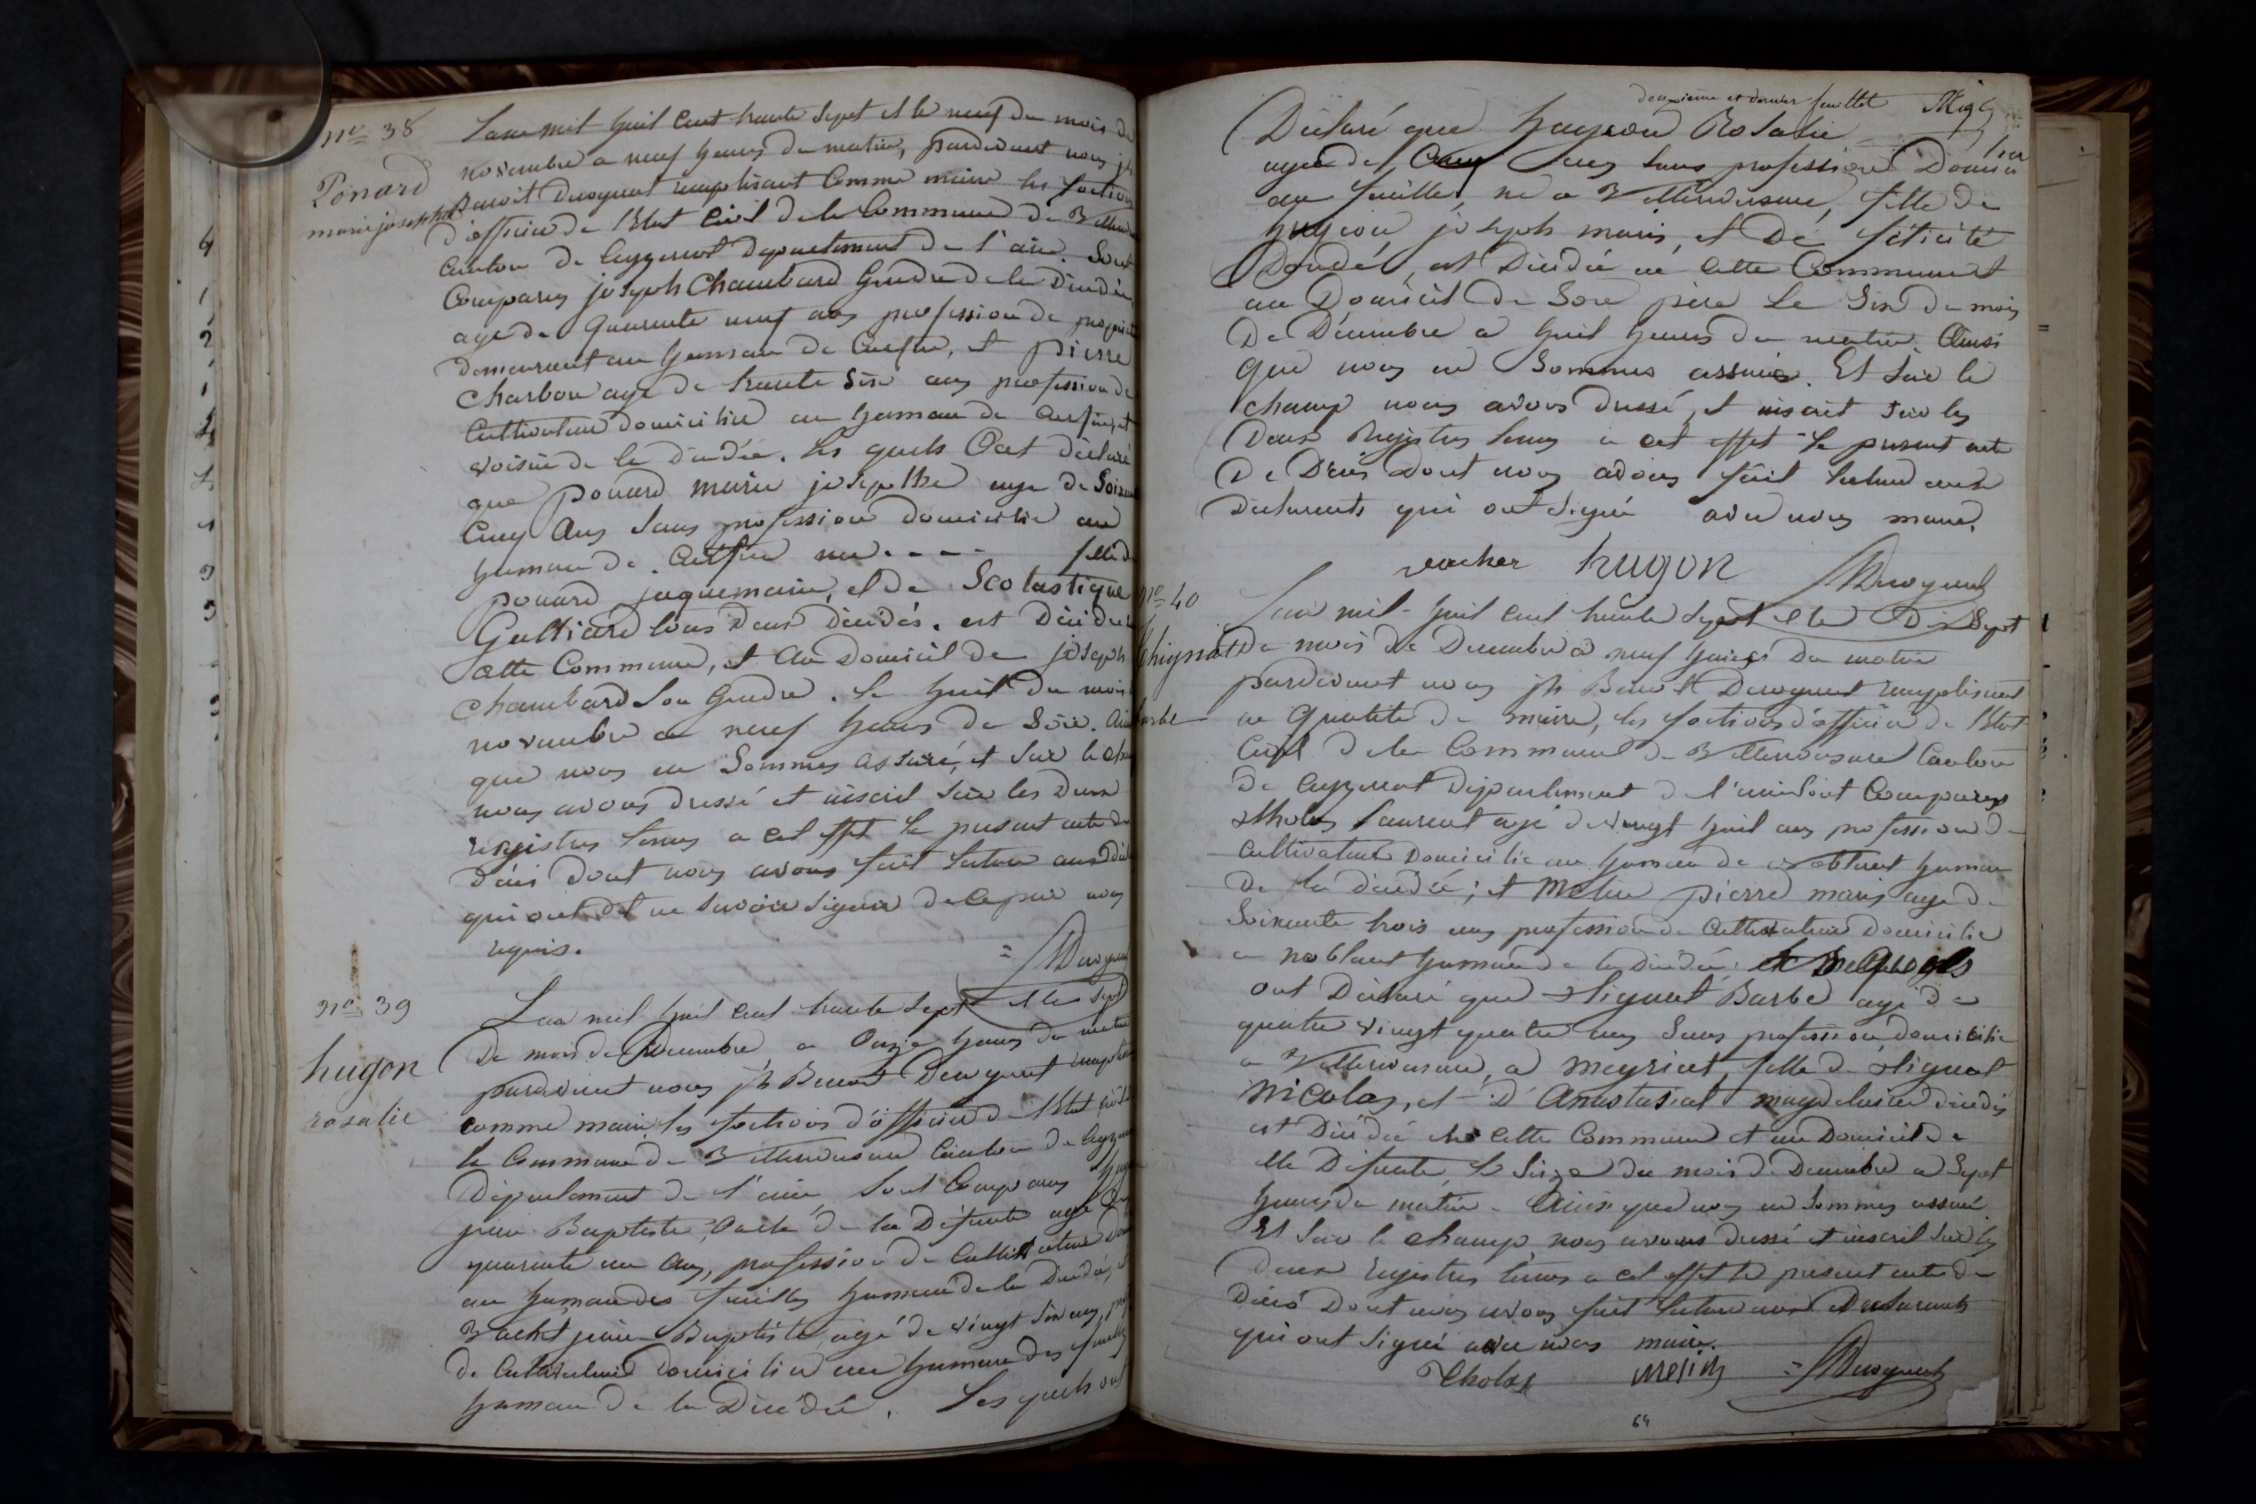 nº 38
Ponard
marie josephte
Lan mil huit Cent trente Sept et le neuf du mois de
novembre a neuf heures du matin, pardevant nous jh
Benoit Duroquet remplissant Comme maire les foctions
d'officier de l'Etat Civil de la Commune de Villereversure
Canton de Ceyzeriat Departement de l'ain. Sont
Comparus joseph Chambard Gendre de la Dècèdée
age de Quarente neuf ans profession de
demeurant au hameau de et pierre
Charbon age de trente Six ans profession de
Cultivateur domicilié au hameau de
voisin de la dècèdèe. les quels Ont dèclaré
que ponard marie josepthe age de Soixante
Cinq Ans Sans profession domicilié au
hameau de nee - - - - fille de
ponard jaquemain, et de Scolastique
Galliard tous Deux dècèdés. est Dècèdée
Cette Commune, et Au Domicil de joseph
Chambard Son Gendre. le huit du mois
novembre a neuf heures du Soir. Ainsi
que nous en Sommes assuré, et Sur le Champ
nous avons dressé et inscrit Sur les Deux
registres tenus a cet effet le present acte de
Décès dont nous avons fait lecture aux
qui ont dit ne Savoir Signer de ce par nous
requis.
nº 39
hugon
rosalie
Lan mil huit Cent trente Sept et le Sept
Du mois de Decembre a Onze heures du matin
pardevant nous jh Benoit Duroquet remplissant
comme maire les foctions d'officier de l'Etat Civil de
la Commune de Villereversure Canton de Ceyzeriat
Departement de l'ain Sont Comparus hugon
jean Baptiste, Oncle de la Défunte age de
quarente un Ans, profession de Cultivateur
au hameau des feuilles hameau de la Dècèdée, et
Vachet jean Baptiste agé de vingt Six ans,
de Cultivateur Domicilié au hameau des feuilles
hameau de la Dècèdée. Les quels ont
deuxième et dernier feuillet
Déclaré que hugon Rosalie
agée de Cinq ans Sans profession Domicilié
au feuilles, né a Villereversure, fille de
hugon joseph marie, et De félicité
est Dècèdèe en Cette Commune et
au Domicil de Son père Le Six du mois
De Décembre a huit heures du matin. Ainsi
que nous en Sommes assurés. Et Sur le
champ nous avons dressé, et inscrit Sur les
Deux Registres tenus a cet effet le present acte
De Décès Dont nous avons fait lecture aux
Declarants qui ont Signé avec nous maire.
vacher hugon
nº 40
Lan mil huit cent trente Sept et le Dix Sept
Du mois de Decembre a neuf heures Du matin
pardevant nous jh Benoit Duroquet remplissant
en Qualité de maire, les foctions d'officier de l'Etat
Civil de la Commune de Villereversure Canton
De Ceyzeriat Departement de l'ain Sont Comparus
Tholas Laurent agé de vingt huit ans profession de
Cultivateur Domicilié au hameau de noblant hameau
De la dècèdèe; et Melin pierre marie age de
Soixante trois ans profession de Cultivateur Domicilié
a noblant hameau de la Dècèdèe. les quels
ont Déclaré que Barbe agé de
quatre vingt quatre ans Sans profession domicilié
a Villereversure, a meyriat, fille de
nicolas, et d'Anastasie magdelaine décédés
est Dècèdèe en Cette Commune et au Domicile De
elle Défunte, le Seize du mois de Decembre a Sept
heures du matin. Ainsi que nous en Sommes assuré
Et Sur le champ nous avons dressé et inscrit Sur les
Deux registres tenus a cet effet le present acte De
Décès Dont nous avons fait lecture aux Declarants
qui ont Signé avec nous maire.
Tholas melin
64